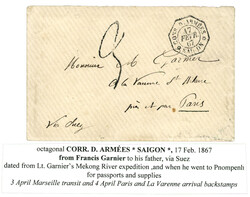 CORR. D. ARMÉES
17
FEVR
67
SAIGON
Monsieur M. Garnier
à la Varenne St Hilaire
près et par Paris
Via Suez
octagonal CORR. D. ARMÉES * SAIGON *, 17 Feb. 1867
from Francis Garnier to his father, via Suez
dated from Lt. Garnier's Mekong River expedition ,and when he went to Pnompenh
for passports and supplies
3 April Marseille transit and 4 April Paris and La Varenne arrival backstamps